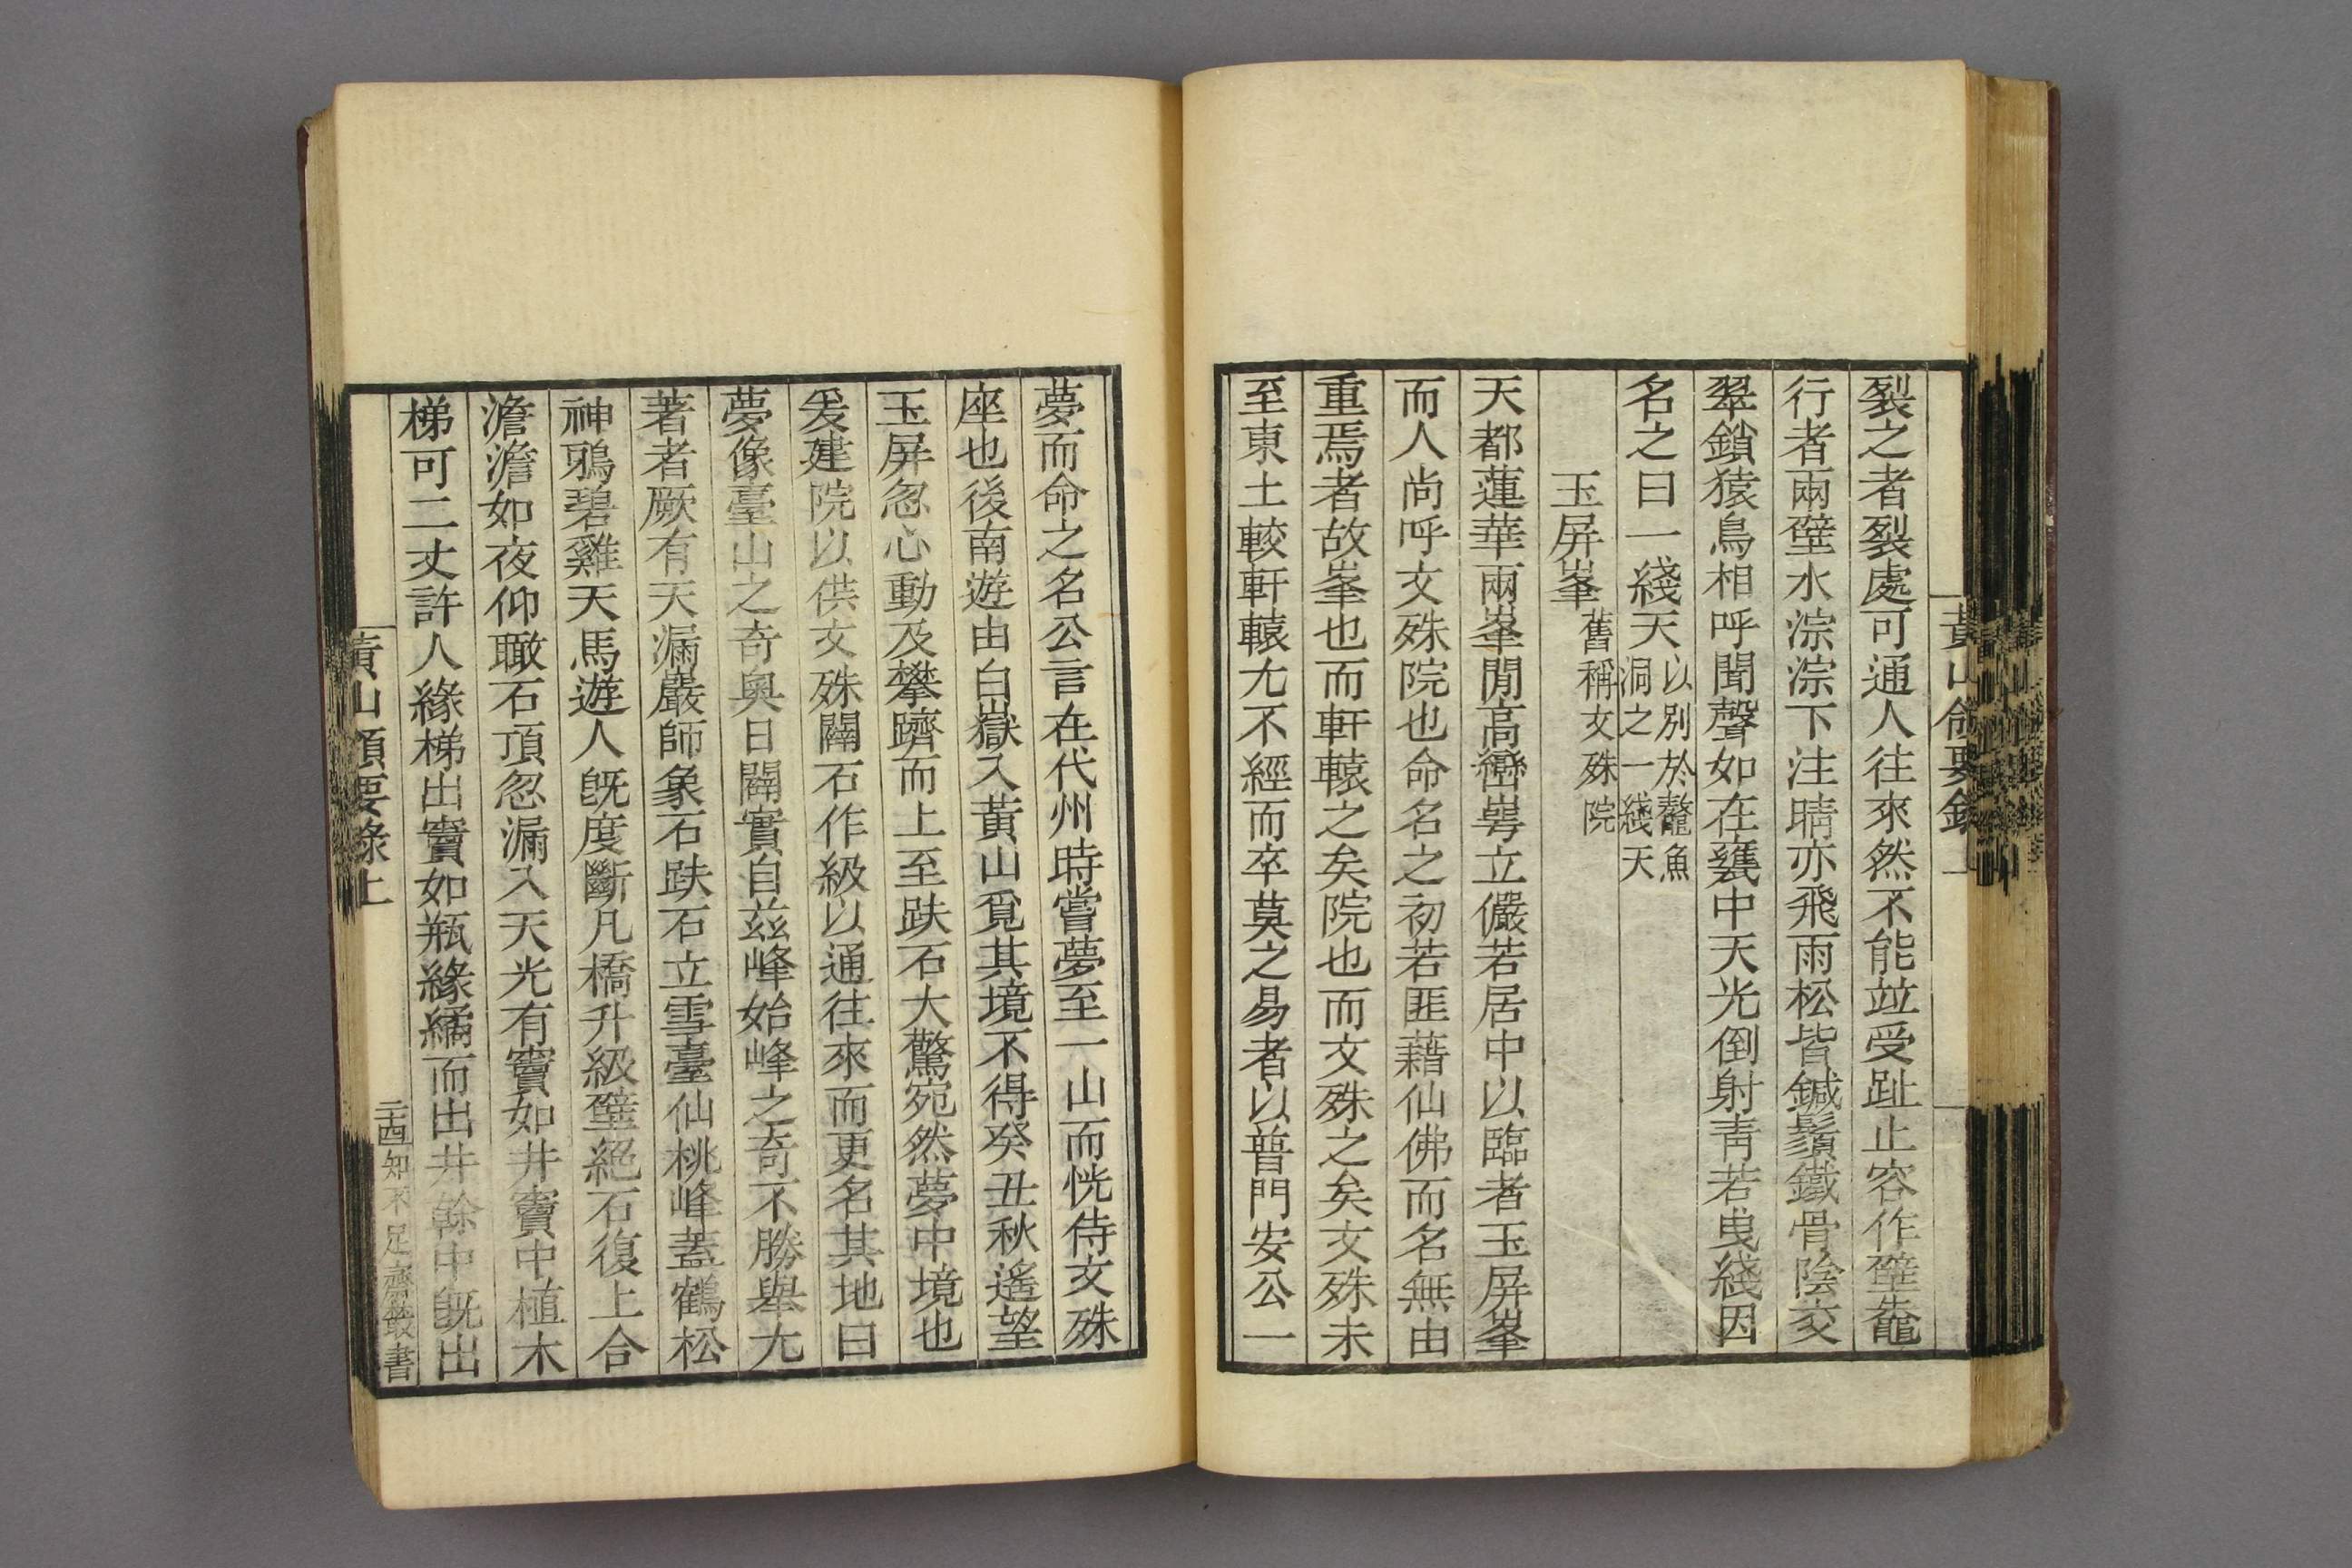 裂之者裂處可通人往來然不能竝受趾止容作壁龕
行者兩壁水淙淙下注晴亦飛雨松皆鍼鬚鐵骨陰交
翠鎖猿鳥相呼聞聲如在甕中天光倒射靑若曳綫因
名之曰一綫天以別於鼇魚洞之一綫天
玉屏峯舊稱文殊院
天都蓮華兩峯閒高巒崿立儼若居中以臨者玉屏峯
而人尚呼文殊院也命名之初若匪藉仙佛而名無由
重焉者故峯也而軒轅之矣院也而文殊之矣文殊未
至東土較軒轅尤不經而卒莫之易者以普門安公一
夢而命之名公言在代州時嘗夢至一山而恍侍文殊
座也後南遊由白嶽入黃山覓其境不得癸丑秋遙望
玉屏忽心動及攀躋而上至趺石大驚宛然夢中境也
爰建院以供文殊闢石作級以通往來而更名其地曰
夢像臺山之奇奧日闢實自茲峰始峰之奇不勝舉尤
著者厥有天漏巖師象石趺石立雪臺仙桃峰蓋鶴松
神鴉碧雞天馬遊人旣度斷凡橋升級壁絕石復上合
澹澹如夜仰瞰石頂忽漏入天光有竇如井竇中植木
梯可二丈許人緣梯出竇如瓶緣繘而出井榦中旣出
黃山領要錄上
二十四
知不足齋叢書